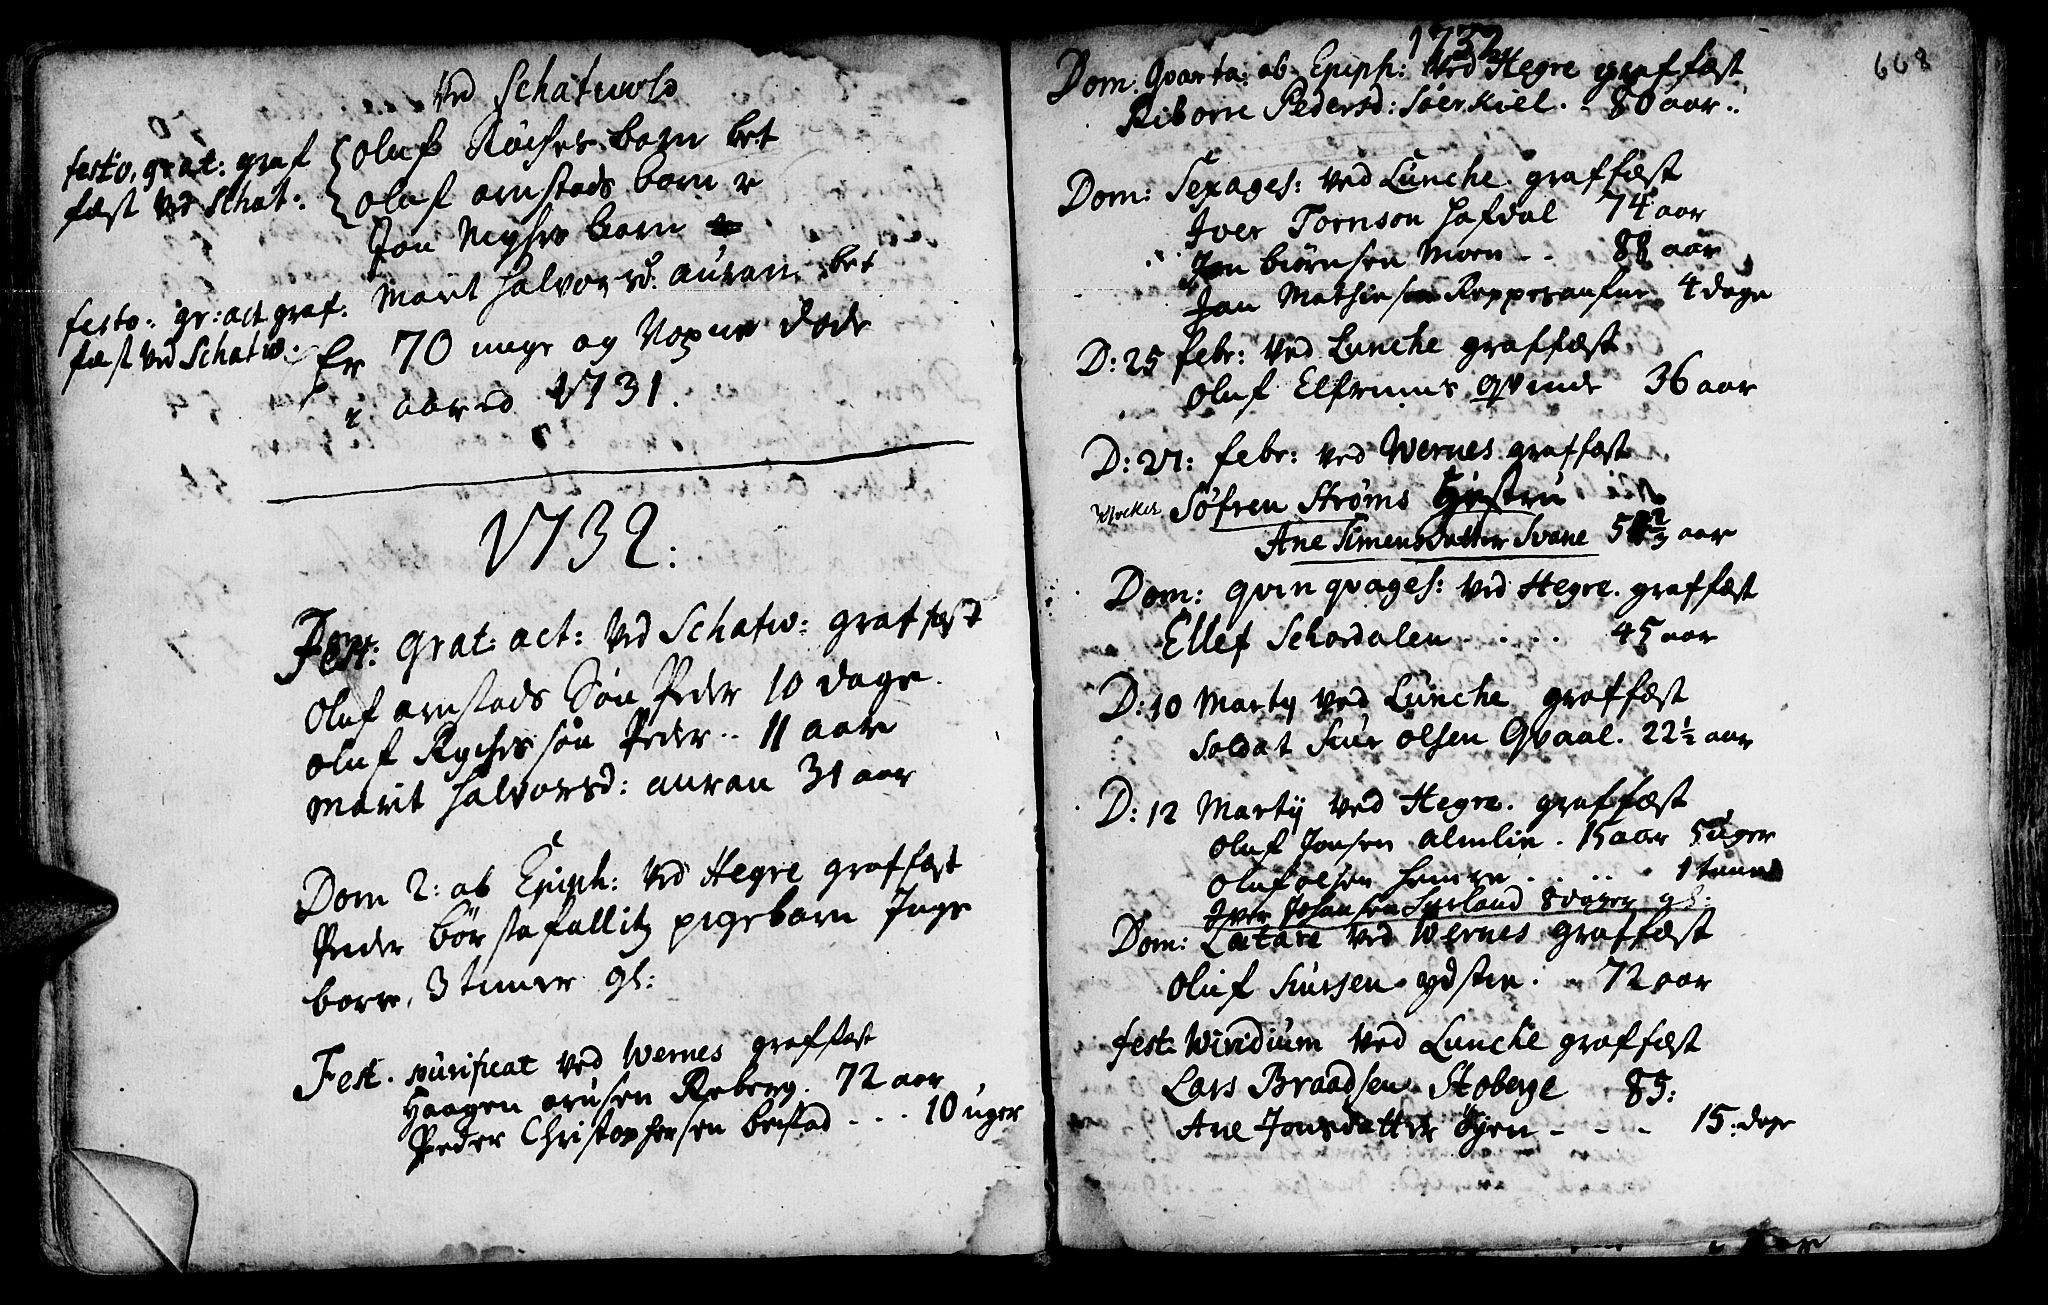 Ved Schatuold
festo. grat: graf
fæst ved Schat:
Oluf Røches barn bet
Oluf arnstads barn
Jon Myhrs barn
festo: gr: act graf:
fæst ved Schatw:
Marit Halvorsd: auran bet
Er 70 unge og Voxne døde
i aared 1731.
1732:
Fest: Grat: act: ved Schatw: graffæst
Oluf arnstads Søn Peder 10 dage.
Oluf Ryches søn Peder .. 11 aar
Marit Halvorsd: auran 31 aar
Dom 2: ab Epiph: ved Hegre graffæst
Peder Børstafallitz pigebarn Inge
borr, 3 timer gl:
Fest. purificat ved Wernes graffæst
Haagen arnsen Reberg. 72 aar
Peder Christophersen beistad - - . 10 uger
1732
668
Dom: Qvarta: ab Epiph: ved Hegre graffæst
Riborre Pedersd: Søerkiel. - 80 aar..
Dom: Sexages: ved Lunche graffæst
Iver Tornson Hafdal 74 aar
Jon Biørnsen Moen - . 88 aar
Jon Mathiesen 4 dage
D: 25 febr: ved Lunche graffæst
Oluf Elfrums Qvinde 36 aar
D: 27: febr: ved Wernes graffæst
Klocker Søfren Strøms Hustru
Ane Simensdatter Svane 5 2/3 aar
Dom: Qvinqvages: ved Hegre. graffæst
Ellef Schordalen . . . . 45 aar
D: 10 Marty ved Lunche graffæst
Soldat Siur Olsen Qvaal. 22 1/2 aar
D: 12 Martij ved Hegre. graffæst
Oluf Jonsen almlie . 15 aar 5 uger
Oluf olsen Hemre . . . . 1 time
Iver Johansen 8 dager gl:
Dom: Lætare ved Wernes graffæst
Oluf Siursen ydstie. - 72 aar
fest: Wiridium ved Lunche graffæst
Lars Braadsen Stoberge 85:
Ane Jonsdatter Øyen - - - 15: dage